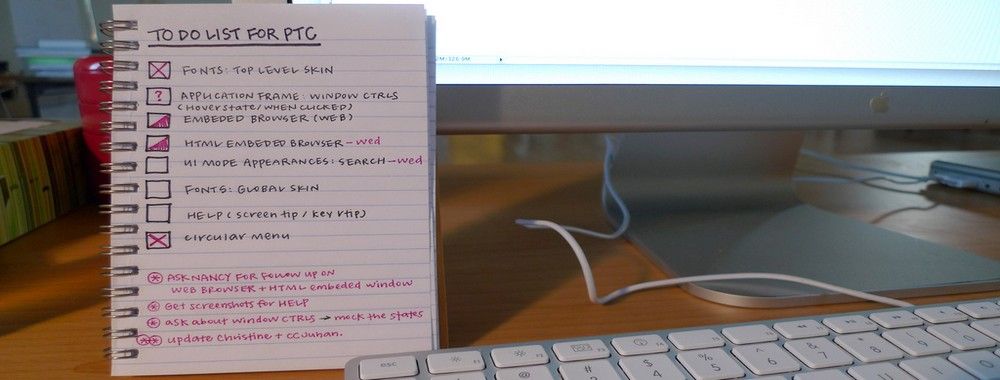 TO DO LIST FOR PTC
FONTS: TOP LEVEL SKIN
? APPLICATION FRAME: WINDOW CTRLS
(HOVER STATE/WHEN CLICKED)
EMBEDED BROWSER (WEB)
HTML EMBEDED BROWSER - wed
UI MODE APPEARANCES: SEARCH - wed
FONTS: GLOBAL SKIN
HELP (screen tip / key tip)
circular menu
* ASK NANCY FOR FOLLOW UP ON
WEB BROWSER + HTML embeded window
* Get screenshots for HELP
* ask about window CTRLS → mock the states
** update Christine + CC Juhan.
esc
F1
F2
F3
F4
#
3
$
4
%
5
^
6
&
7
*
8
9